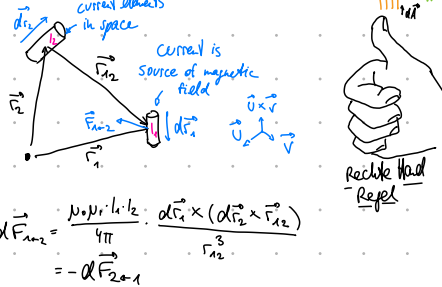 current elements
in space
dr₂
I₂
r₁₂
r₂
current is
source of magnetic
field
F₁→₂
I₁
dr₁
r₁
U × V
U
V
dA
Rechte Hand
Regel
dF₁→₂ = μ₀μᵣ·I₁·I₂ / 4π · dr₁ × (dr₂ × r₁₂) / r₁₂³
= -dF₂←₁